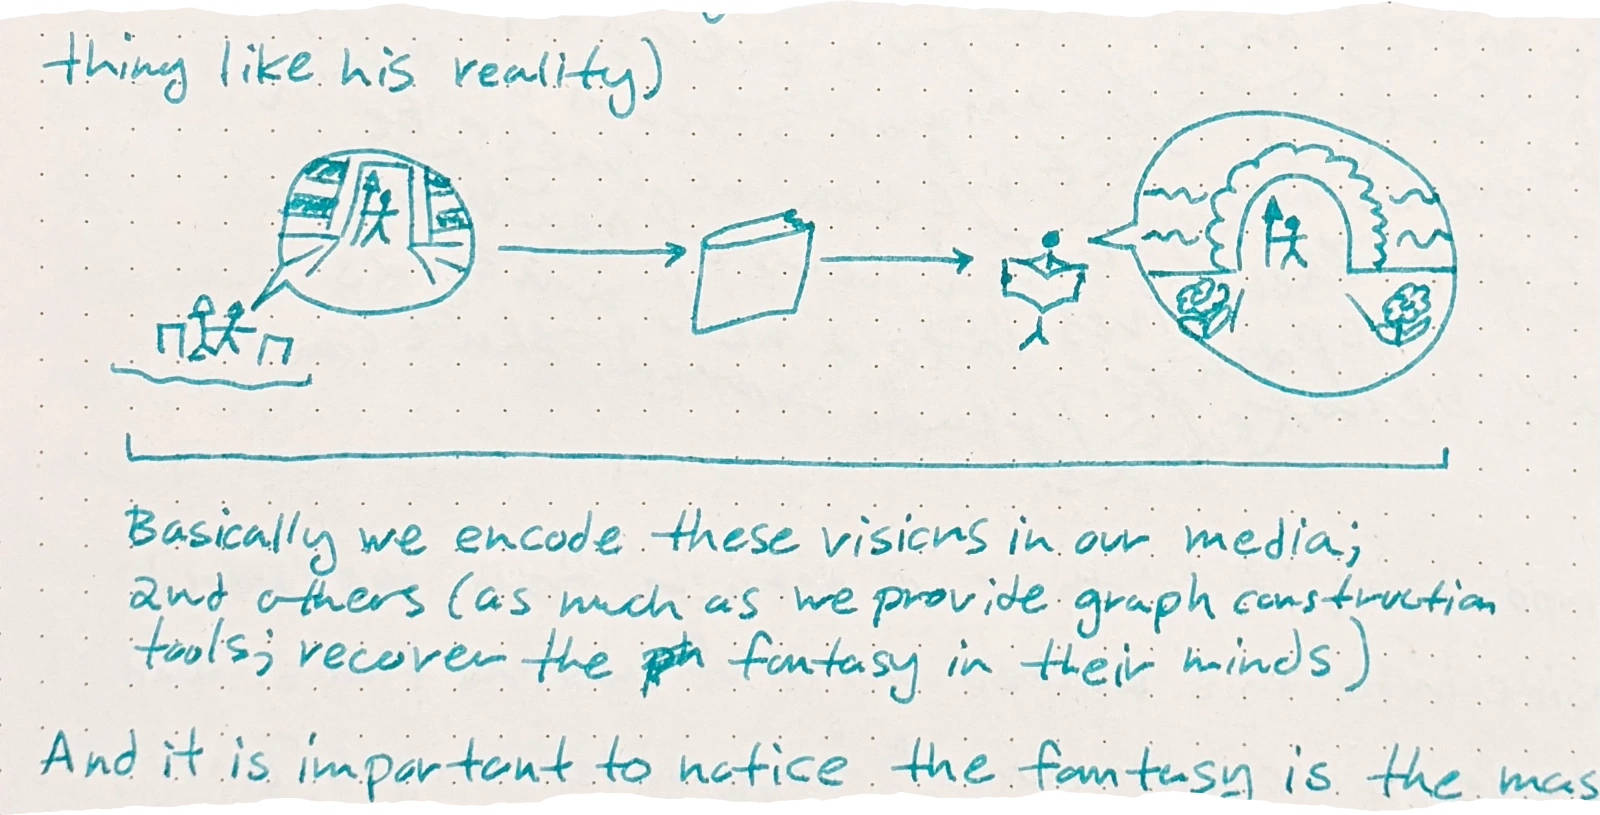 thing like his reality)
Basically we encode these visions in our media;
and others (as much as we provide graph construction
tools; recover the fantasy in their minds)
And it is important to notice the fantasy is the mas